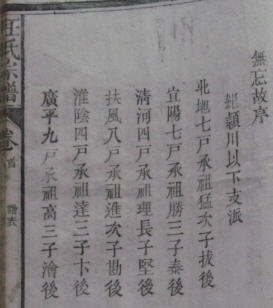 無忘故序
紀潁川以下支派
北地七戶承祖猛次子拔後
宜陽七戶承祖勝三子泰後
清河四戶承祖理長子堅後
扶風八戶承祖進次子勘後
淮陰四戶承祖達三子卞後
廣平九戶承祖高三子澮後
汪氏宗譜
卷首